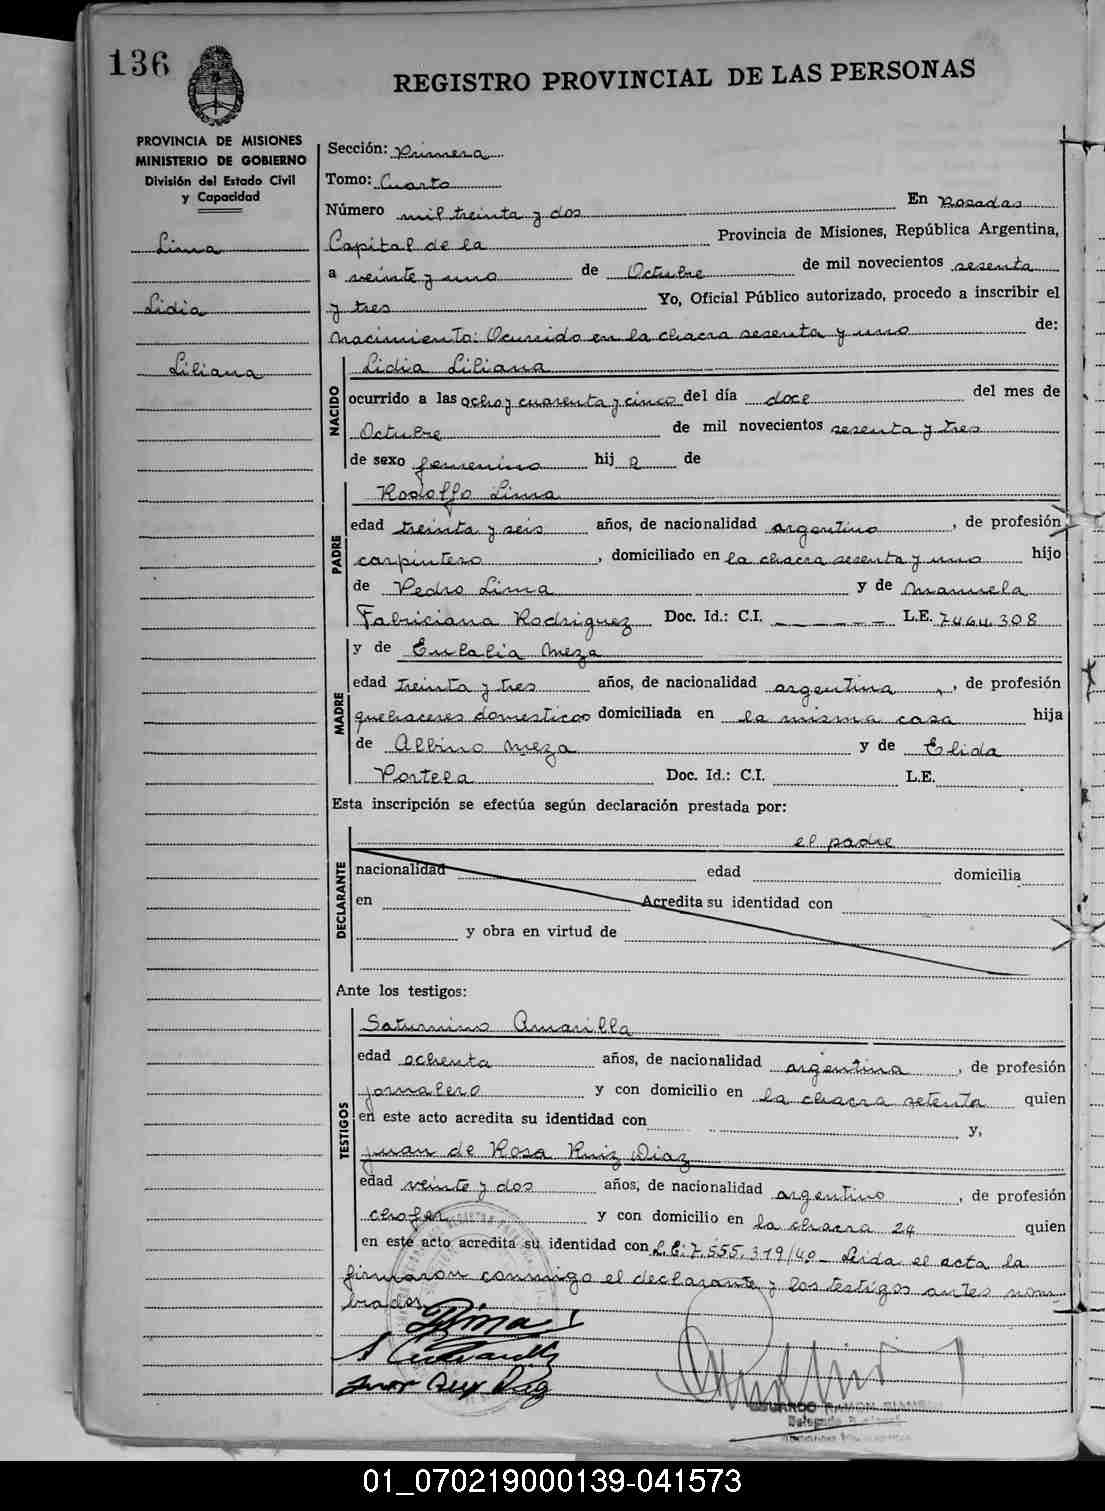 136
REGISTRO PROVINCIAL DE LAS PERSONAS
PROVINCIA DE MISIONES
MINISTERIO DE GOBIERNO
División del Estado Civil
y Capacidad
Lima
Lidia
Liliana
Sección: Primera
Tomo: Cuarto
Número mil treinta y dos En Posadas
Capital de la Provincia de Misiones, República Argentina,
a veinte y uno de Octubre de mil novecientos sesenta
y tres Yo, Oficial Público autorizado, procedo a inscribir el
Nacimiento: Ocurrido en la chacra sesenta y uno de:
NACIDO
Lidia Liliana
ocurrido a las ocho y cuarenta y cinco del día doce del mes de
Octubre de mil novecientos sesenta y tres
de sexo femenino hij a de
PADRE
Rodolfo Lima
edad treinta y seis años, de nacionalidad argentino, de profesión
carpintero, domiciliado en la chacra sesenta y uno hijo
de Pedro Lima y de Manuela
Fabriciana Rodriguez Doc. Id.: C.I. _ _ _ _ _ _ L.E. 7464.308
MADRE
y de Eulalia Meza
edad treinta y tres años, de nacionalidad argentina, de profesión
quehaceres domesticos domiciliada en la misma casa hija
de Albino Meza y de Elida
Portela Doc. Id.: C.I. L.E.
Esta inscripción se efectúa según declaración prestada por:
DECLARANTE
el padre
nacionalidad edad domicilia
en Acredita su identidad con
y obra en virtud de
Ante los testigos:
TESTIGOS
Saturnino Amarilla
edad ochenta años, de nacionalidad argentina, de profesión
jornalero y con domicilio en la chacra setenta quien
en este acto acredita su identidad con y,
Juan de Rosa Ruiz Diaz
edad veinte y dos años, de nacionalidad argentino, de profesión
chofer y con domicilio en la chacra 24 quien
en este acto acredita su identidad con L.E: 7.555.319/40_ Leida el acta la
firmaron conmigo el declarante y los testigos antes nom-
brados
Lima
EDUARDO RAMON
01_070219000139-041573